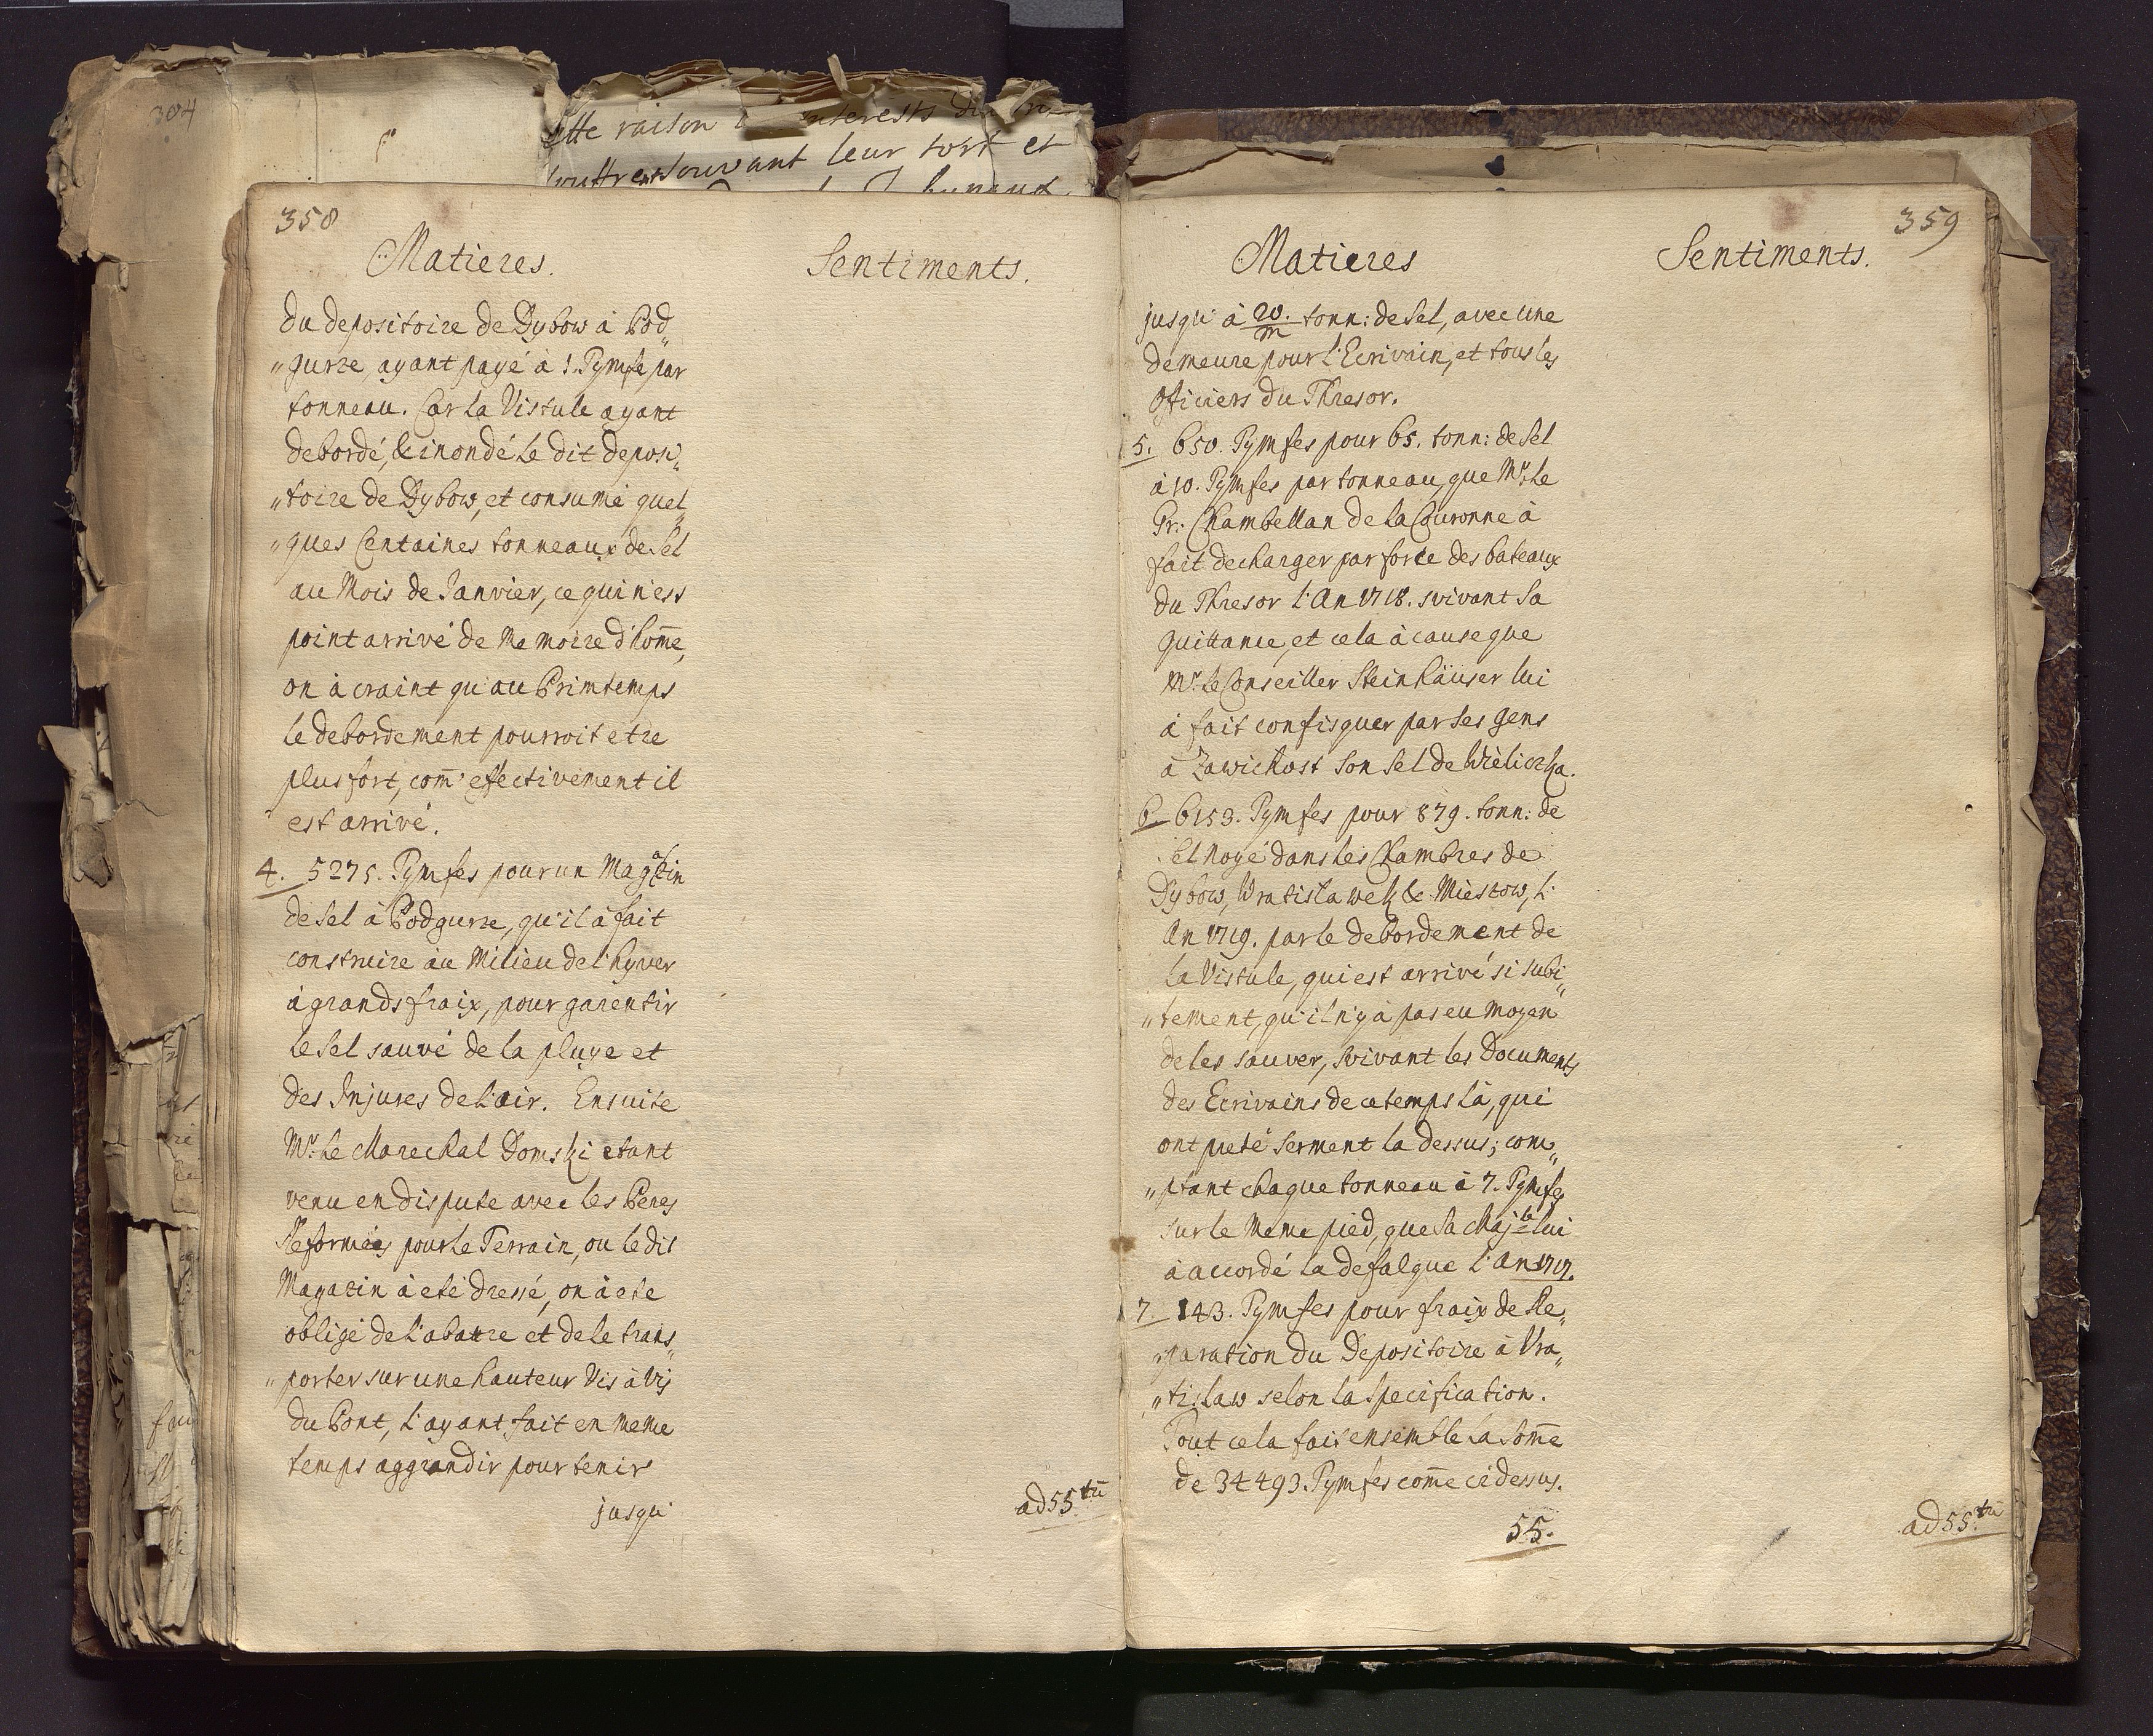 304
cette raison interests du
souvant leur tort et
358
Matieres.
Sentiments.
du depositoire de Dybow à Pod„
„gurze, ayant payé à 1. Tymfe par
tonneau. Car la Vistule ayant
debordé, & inondé le dit deposi„
„toire de Dybow, et consumé quel„
„ques Centaines tonneaux de Sel
au Mois de Janvier, ce qui n'est
point arrivé de Memoire d'hom̅e,
on à craint qu'au Printemps
le debordement pourroit etre
plus fort, com̅' effectivement il
est arrivé.
4. 5275. Tymfes pour un Magazin
de Sel à Podgurze, qu'il à fait
construire au Milieu de l'hyver
à grands fraix, pour garentir
le Sel sauvé de la pluye et
des Injures de l'air. Ensuite
Mr. le Marechal Domski etant
venu en dispute avec les Peres
Reformés pour le Terrain, ou le dit
Magazin à eté dressé, on à ete
obligé de l'abattre et de le trans„
„porter sur une hauteur Vis à Vis
du Pont, l'ayant fait en meme
temps aggrandir pour tenir
jusqu'
ad 55.tū
359
Matieres
Sentiments.
jusqu'à 20./m tonn: de Sel, avec une
demeure pour l'Ecrivain, et tous les
Officiers du Thresor.
5. 650. Tymfes pour 65. tonn: de Sel
à 10. Tymfes par tonneau, que Mr. le
Gr: Chambellan de la Couronne à
fait decharger par force des bateaux
du Thresor l'An 1718. suivant Sa
quittance, et cela à cause que
Mr. le Conseiller Steinhäuser lui
à fait confisquer par Ses gens
à Zawichost Son Sel de Wieliczka.
6. 6153. Tymfes pour 879. tonn: de
Sel noyé dans les Chambres de
Dybow, Wratislawek & Miestow, l'
An 1719. par le debordement de
la Vistule, qui est arrivé si subi„
„tement, qu'il n'y à pas eu moyen
de les sauver, suivant les Documents
des Ecrivains de ce temps là, qui
ont preté Serment la dessus; com„
„ptant chaque tonneau à 7. Tymfes
sur le meme pied, que Sa Maj.te lui
à accordé la defalque l'An 1717.
7. 143. Tymfes pour fraix de Re„
„paration du Depositoire à Vra„
„tislaw selon la Specification.
Tout cela fait ensemble la Som̅e
de 34493. Tymfes com̅e cidessus.
55.
ad 55.tū